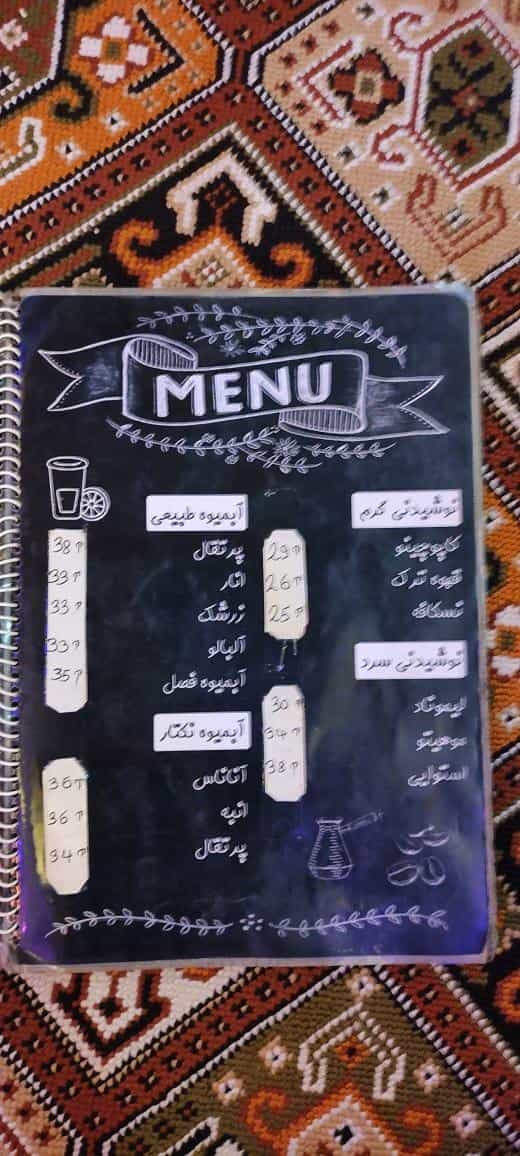 MENU
نوشیدنی گرم
کاپوچینو 29 ت
قهوه ترک 26 ت
نسکافه 25 ت
نوشیدنی سرد
لیموناد 30 ت
موهیتو 34 ت
استوایی 38 ت
آبمیوه طبیعی
پرتقال 38 ت
انار 33 ت
زرشک 33 ت
آلبالو 33 ت
آبمیوه فصل 35 ت
آبمیوه نکتار
آناناس 36 ت
انبه 36 ت
پرتقال 34 ت